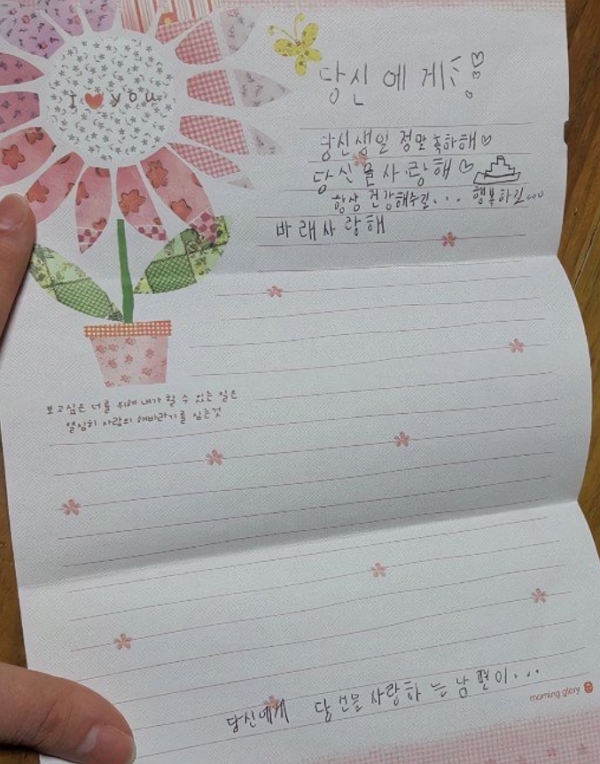 I ♥ you
당신에게
당신생일 정말 축하해♡
당신을사랑해♡
항상 건강해주길... 행복하길...
바래사랑해
보고싶은 너를 위해 내가 할 수 있는 일은
열심히 사랑의 해바라기를 심는것
당신에게 당신을사랑하는남편이...
morning glory